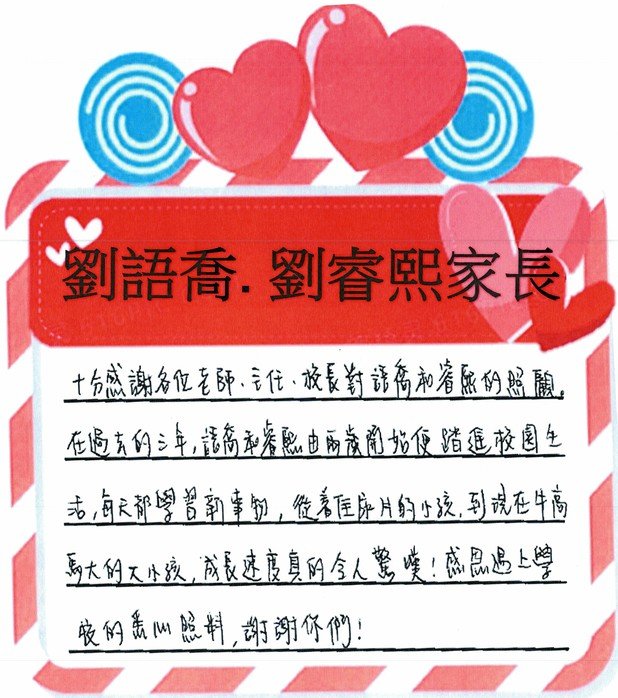 劉語喬.劉睿熙家長
十分感謝各位老師、主任、校長對語喬和睿熙的照顧。
在過去的三年,語喬和睿熙由兩歲開始便踏進校園生
活,每天都學習新事物,從着住尿片的小孩,到現在牛高
馬大的大小孩,成長速度真的令人驚嘆!感恩遇上學
校的悉心照料,謝謝你們!